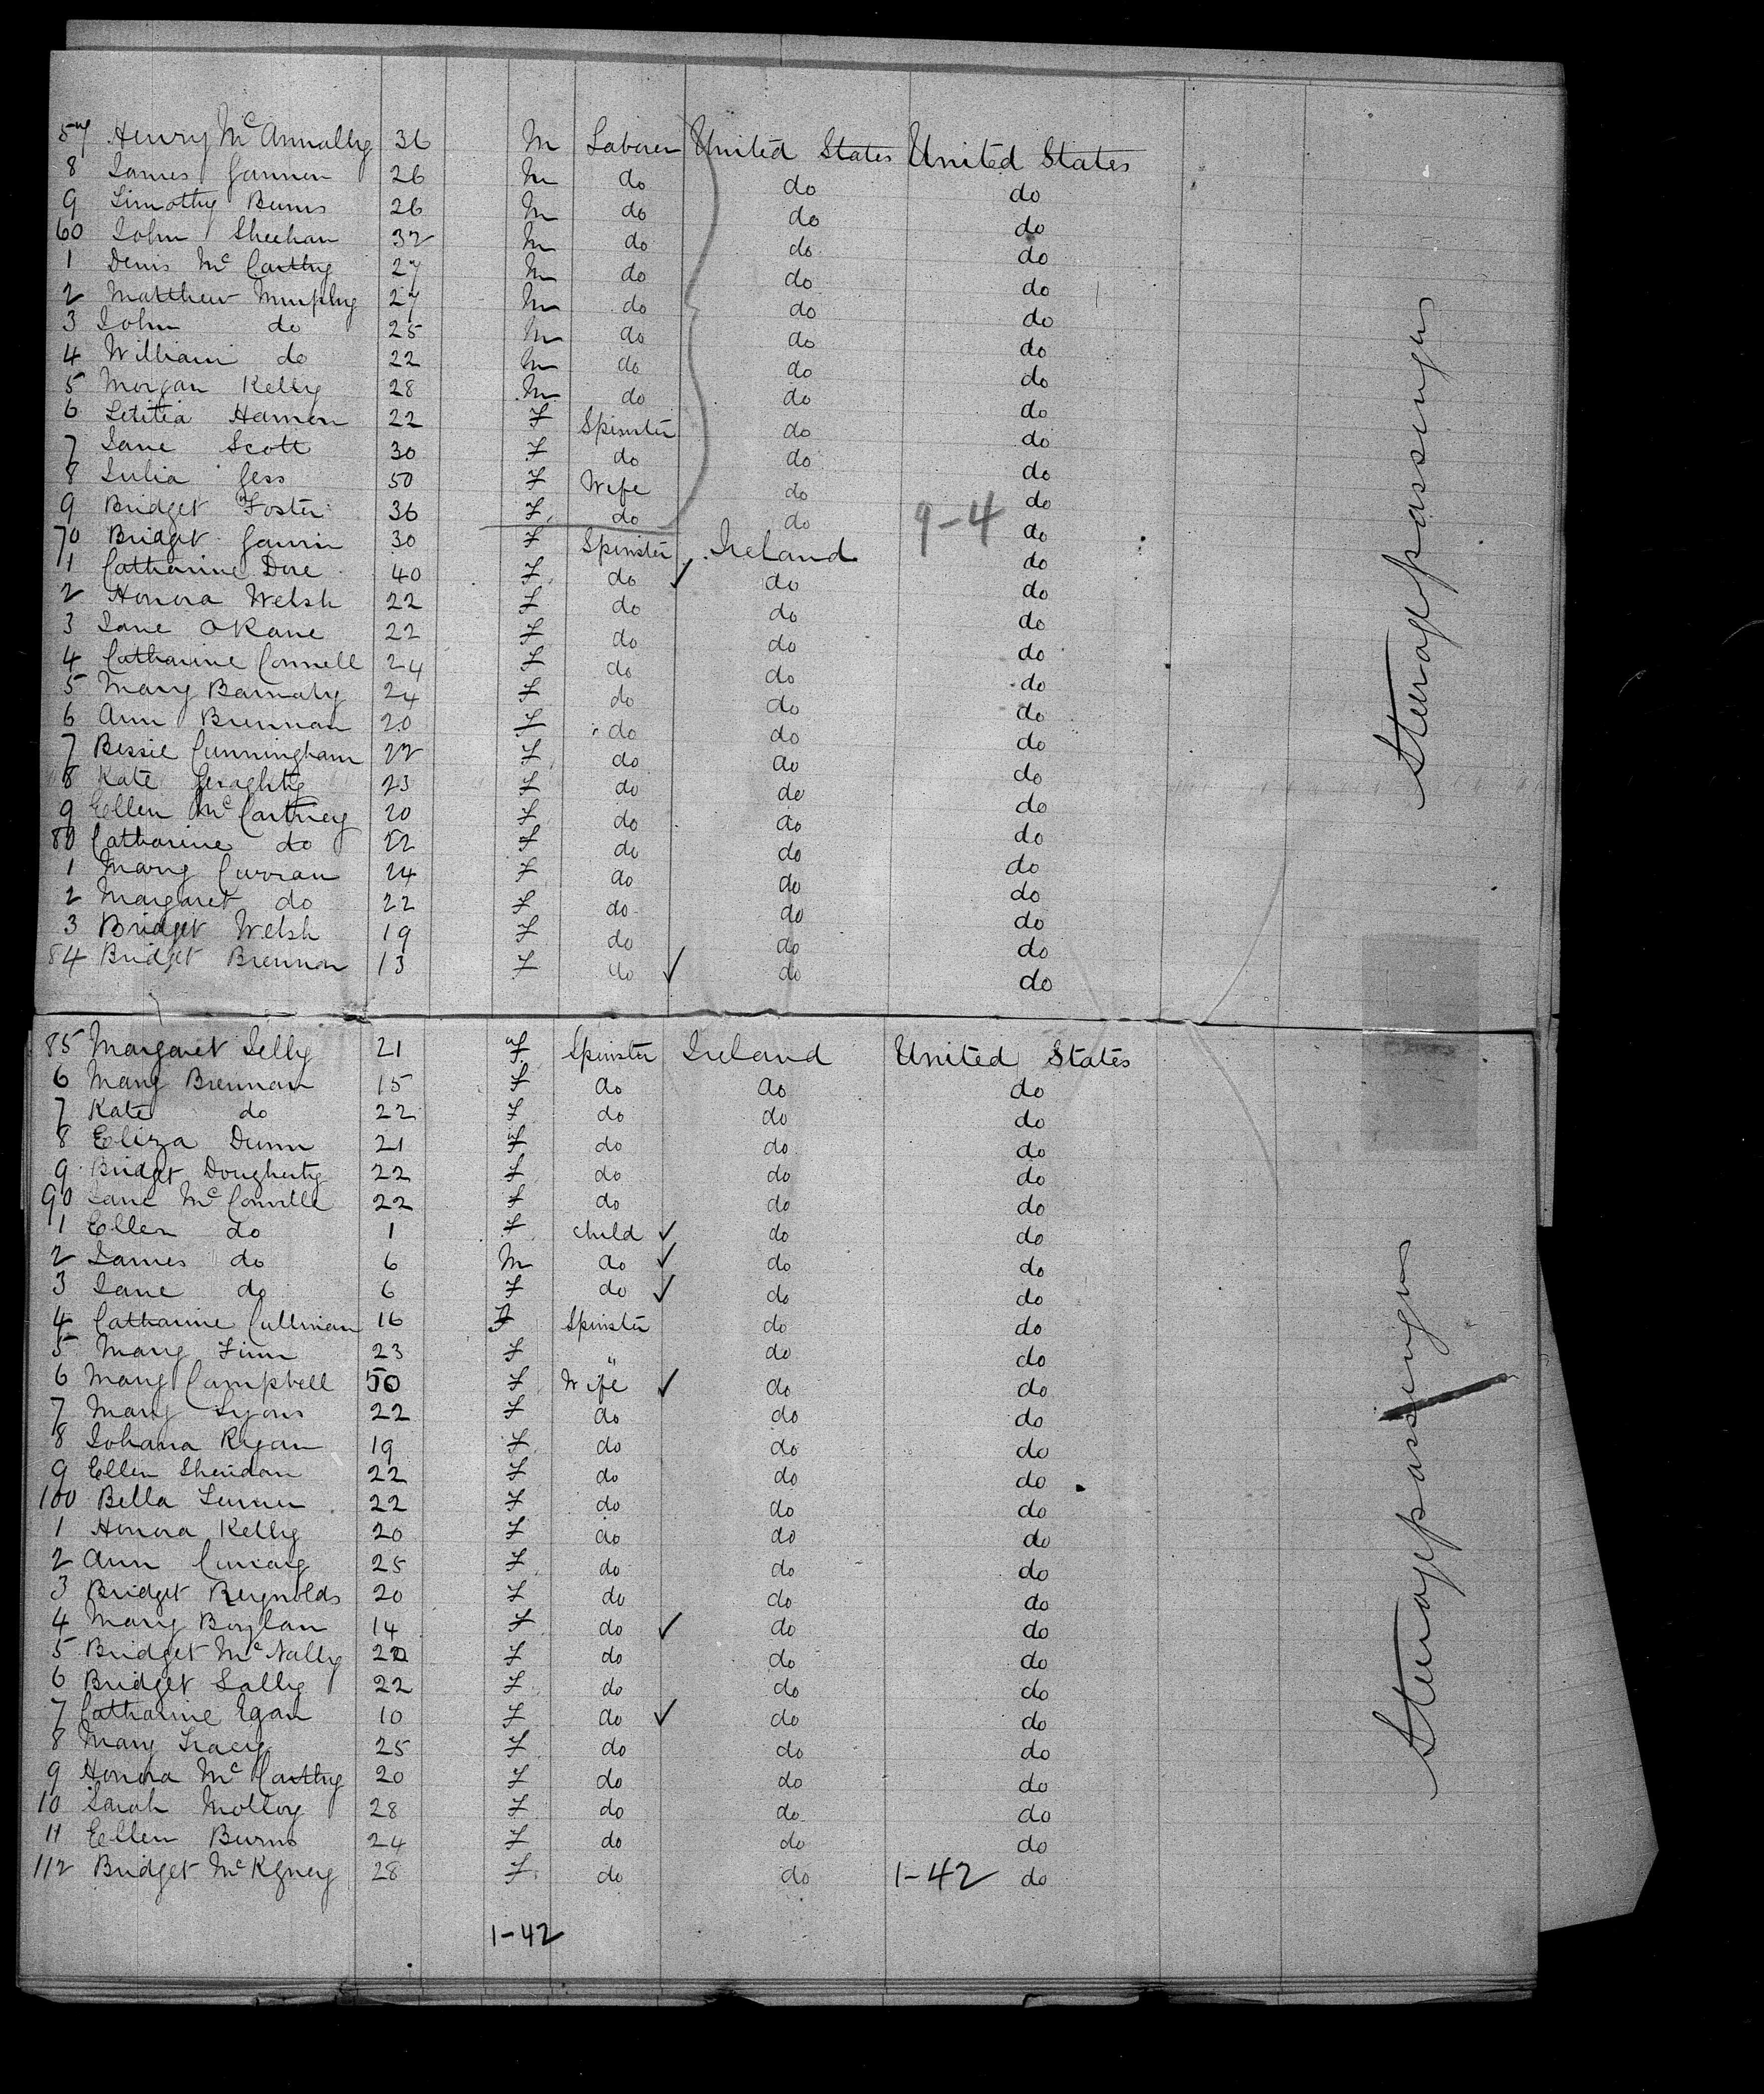 57 Henry McAnnally 36 M Laborer United States United States
8 James Gannon 26 M do do do
9 Timothy Burns 26 M do do do
60 John Sheehan 32 M do do do
1 Denis McCarthy 27 M do do do
2 Matthew Murphy 27 M do do do
3 John do 25 M do do do
4 William do 22 M do do do
5 Morgan Kelly 28 M do do do
6 Letitia 22 F Spinster do do
7 Jane Scott 30 F do do do
8 Julia Gess 50 F Wife do do
9 Bridget Foster 36 F do do 9-4 do
70 Bridget 30 F Spinster Ireland do
1 Catharine Dore 40 F do ✓ do do
2 Honora Welsh 22 F do do do
3 Jane OKane 22 F do do do
4 Catharine Connell 24 F do do do
5 Mary Barnaby 24 F do do do
6 Ann Brennan 20 F do do do
7 Bessie Cunningham 22 F do do do
8 Kate Geraghty 23 F do do do
9 Ellen McCartney 20 F do do do
80 Catharine do 22 F do do do
1 Mary Curran 24 F do do do
2 Margaret do 22 F do do do
3 Bridget Welsh 19 F do do do
84 Bridget Brennan 13 F do ✓ do do
Steerage passenger
85 Margaret 21 F Spinster Ireland United States
6 Mary Brennan 15 F do do do
7 Kate do 22 F do do do
8 Eliza Dunn 21 F do do do
9 Bridget Dougherty 22 F do do do
90 Jane McConville 22 F do do do
1 Ellen do 1 F child ✓ do do
2 James do 6 M do ✓ do do
3 Jane do 6 F do ✓ do do
4 Catharine Cullinan 16 F Spinster do do
5 Mary Finn 23 F " do do
6 Mary Campbell 50 F Wife ✓ do do
7 Mary Lyons 22 F do do do
8 Johana Regan 19 F do do do
9 Ellen Sheridan 22 F do do do
100 Bella 22 F do do do
1 Honora Kelly 20 F do do do
2 Ann 25 F do do do
3 Bridget Reynolds 20 F do do do
4 Mary Boylan 14 F do ✓ do do
5 Bridget McNally 22 F do do do
6 Bridget Lally 22 F do do do
7 Catharine Egan 10 F do ✓ do do
8 Mary Tracey 25 F do do do
9 Honora McCarthy 20 F do do do
10 Sarah Molloy 28 F do do do
11 Ellen Burns 24 F do do do
112 Bridget 28 F do do 1-42 do
1-42
Steerage passenger